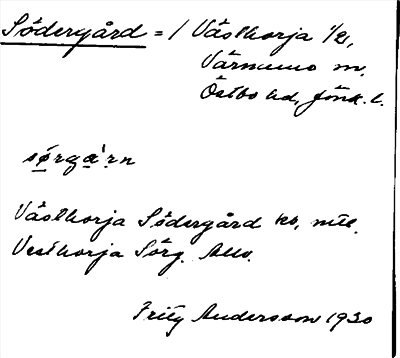 Södergård = / Västhorja 1/2,
Värnamo m.
Östbo hd, Jönk. l.
sørga'rn
Västhorja Södergård
Vesthorja Sörg. Allm.
Fritz Andersson 1930